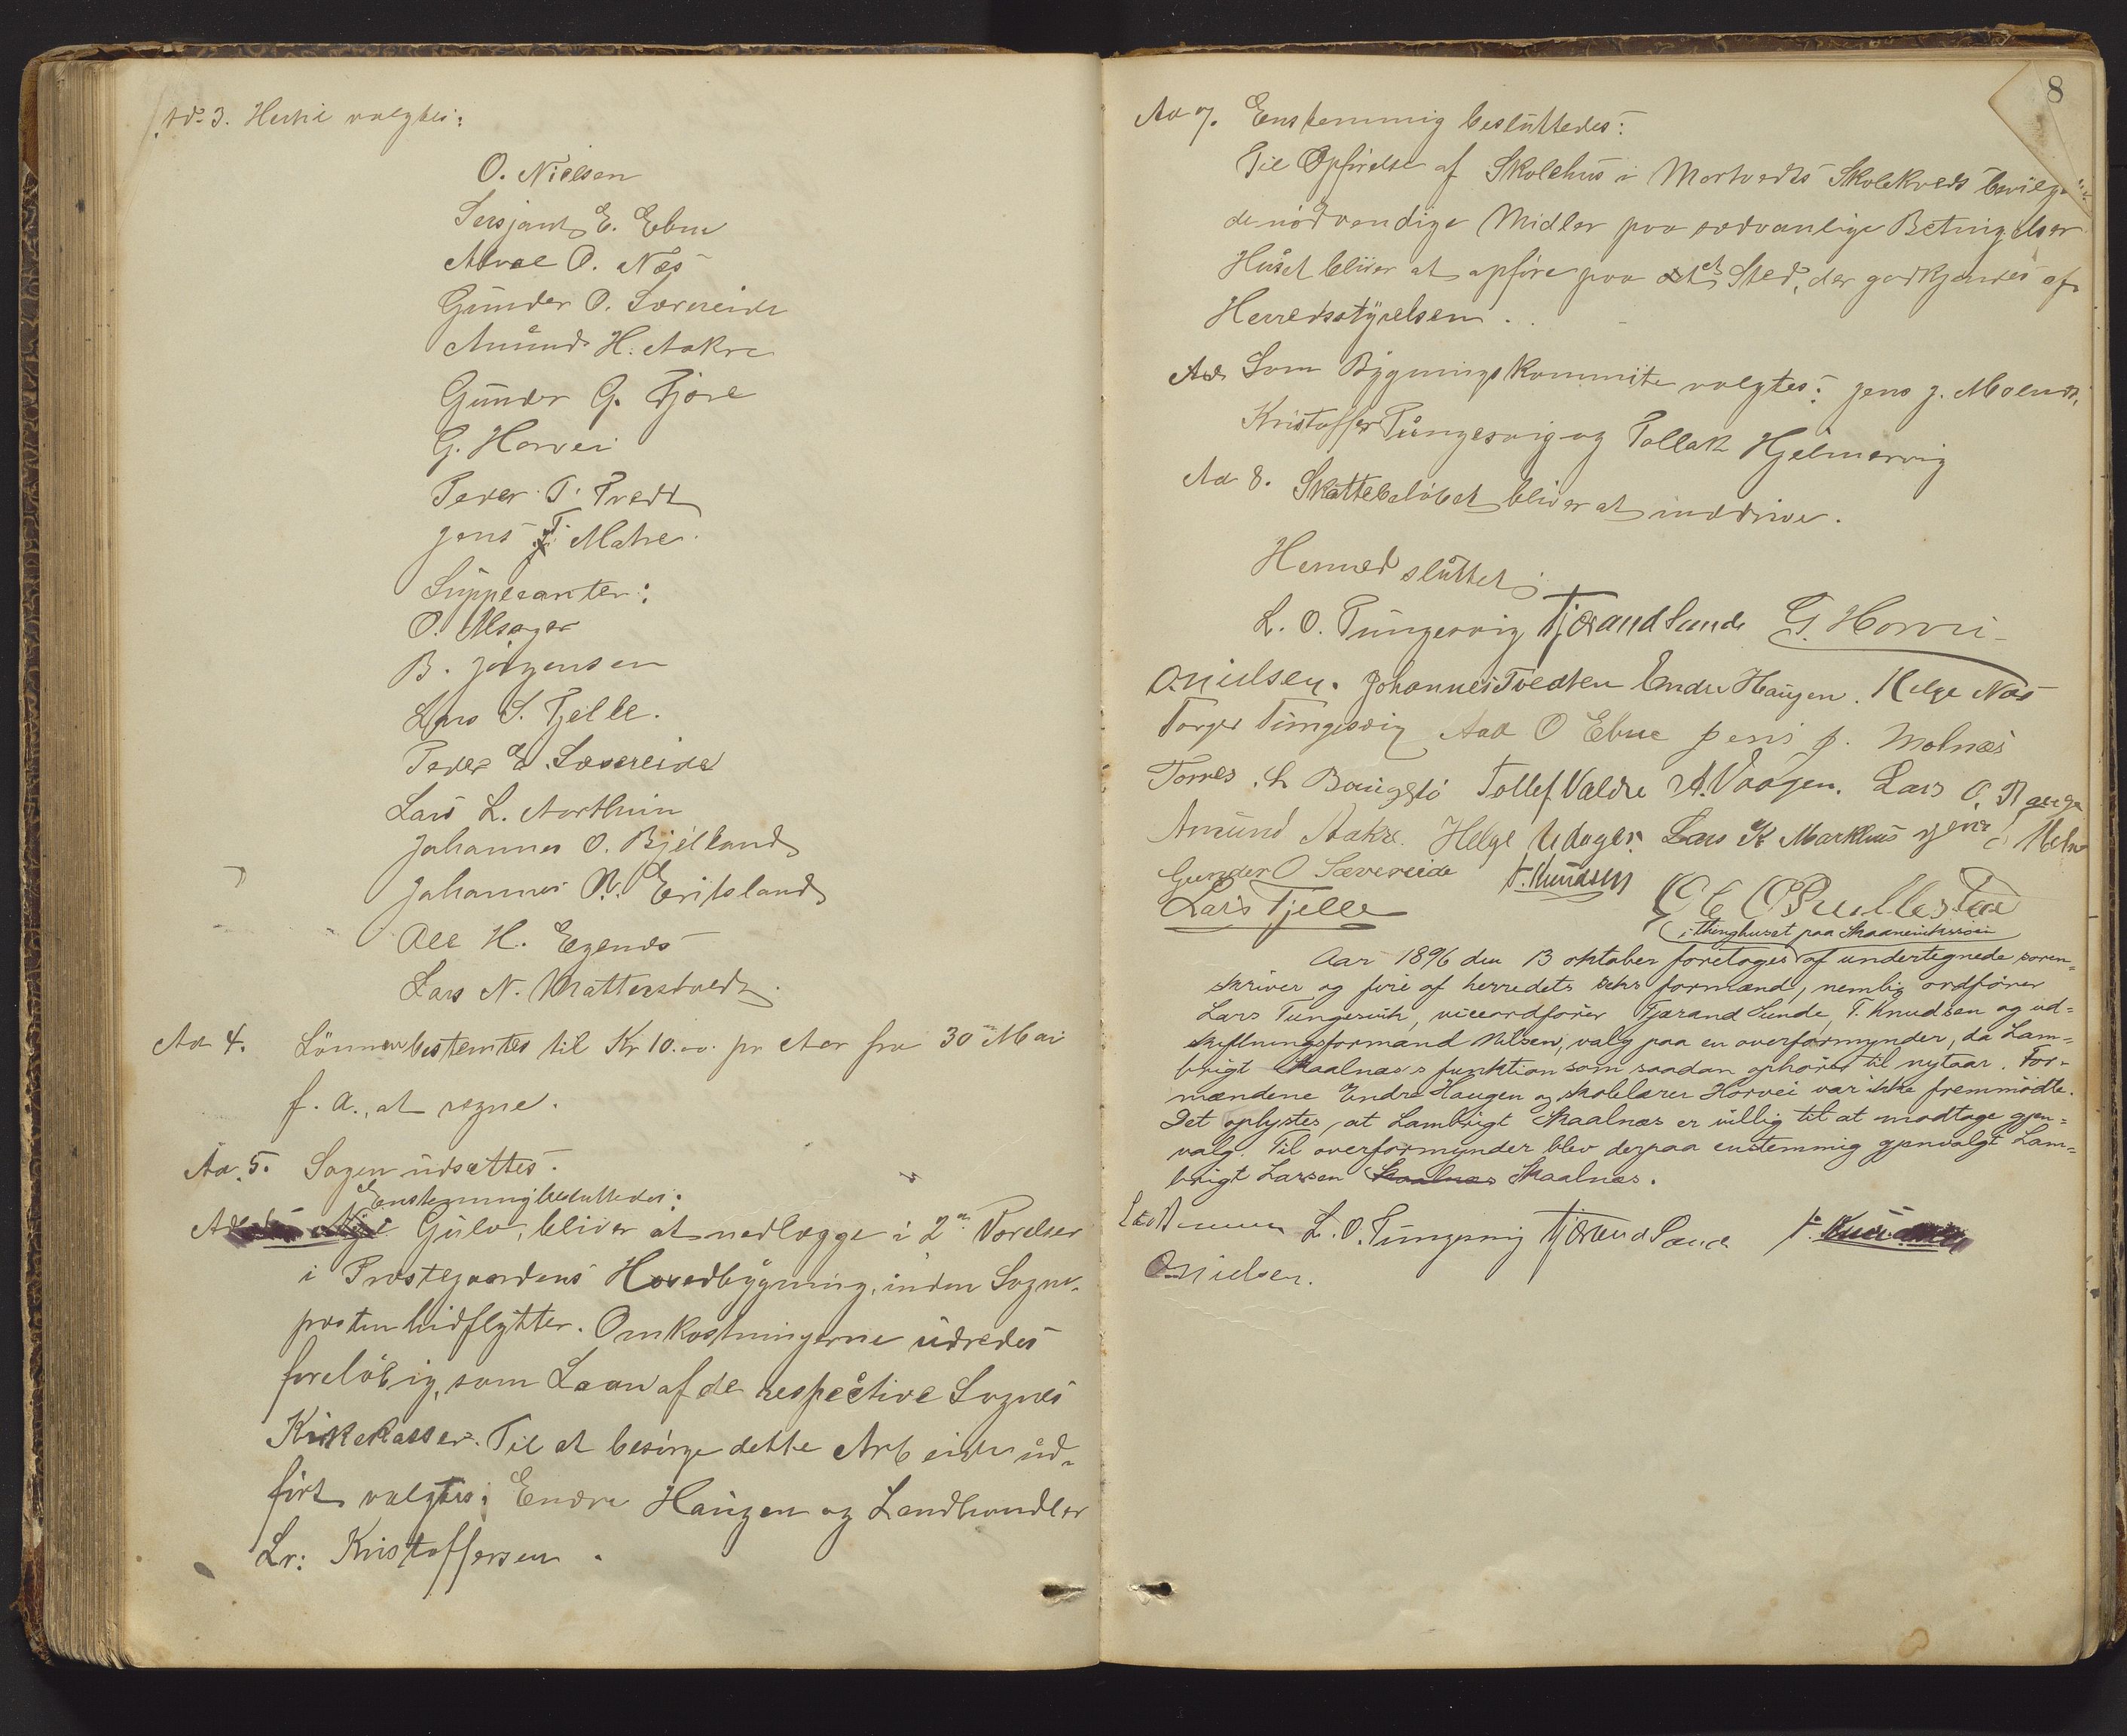 Ad. 3. Hertil valgtes:
O. Nielsen
Sersjant E. Ebne
O. Næs
Gunder O. Sævereide
Amund H. Aakre
Gunder G. Fjære
G. Horvei
Peder T. Tvedt
Jens T. Matre.
Suppleanter:
O. Alsager
B. Jörgensen
Lars S. Tjelle.
Peder E. Sævereide
Lars L.
Johannes O. Bjelland
Johannes N. Eritsland
Ole H. Egenæs
Lars N. Mattersdvedt.
Ad 4. Lönnen bestemtes til Kr 10.00. pr Aar fra 30te Mai
f. a., at regne.
Ad. 5. Sagen udsættes.
Enstemmig besluttedes:
Nye Gulv, bliver at nedlægge i 2de Værelser
i Præstegaardens Hovedbygning, inden Sogne-
præsten hidflytter. Omkostningerne udredes
foreløbig, som Laan af de respective Sognes
Kirkekasser. Til at besørge dette Arbeide ud-
ført valgtes: Endre Haugen og Landhandler
Lr: Kristoffersen.
8
Ad 7. Enstemmig besluttedes:
Til Opførelse af Skolehus i Mortvedts Skolekreds
de nødvendige Midler paa sædvanlige Betingelser
Huset bliver at opføre paa et Sted, der godkjendes af
Herredsstyrelsen.
Ad Som Bygningskommite valgtes: Jens J. Molnæs,
Kristoffer Tungesvig og Tollak Hjelmervig
Ad 8. Skattebeløbet bliver at inddrive.
Hermed sluttet;
L. O. Tungesvig Tjærand Sunde G. Horvei
O. Nielsen. Johannes Tvedten Endre Haugen. Helge Næs
Torger Tungesvig Aad O Ebne Jens J. Molnæs
Tornes. L. Baugstø Tollef Valdre A. Vaagen. Lars O.
Amund Aakre. Helge Udager. Lars K Markhus Jens
Gunder O Sævereide T. Knudsen
Lars Tjelle
i thinghuset paa Skaanevikssøen
Aar 1896 den 13 oktober foretoges af undertegnede soren-
skriver og fire af herredets seks formænd, nemlig ordfører
Lars Tungesvik, viceordfører Tjærand Sunde, T. Knudsen og ud-
skiftningsformand Nilsen, valg paa en overformynder, da Lam-
brigt Skaalnæs's funktion som saadan ophører til nytaar. For-
mændene Endre Haugen og skolelærer Horvei var ikke fremmødte.
Det oplystes, at Lambrigt Skaalnæs er villig til at modtage gjen-
valg. Til overformynder blev derpaa enstemmig gjenvalgt Lam-
brigt Larsen Skaalnæs Skaalnæs.
L. O. Tungesvig Tjærand Sunde T. Knudsen
O. Nielsen.